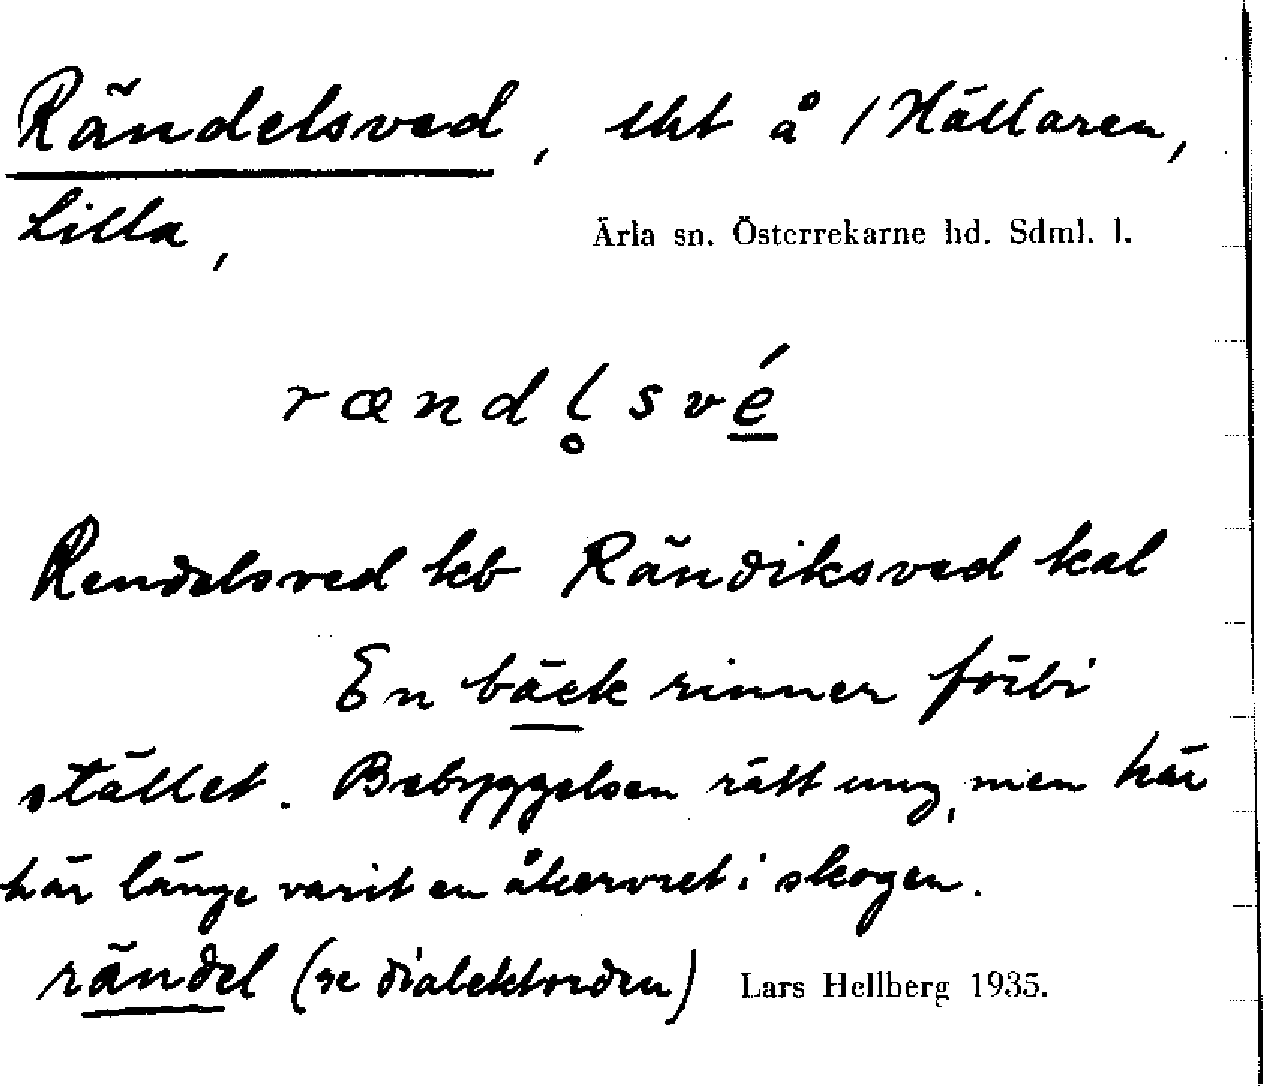 Rändelsved, lht å /Hållaren,
Lilla,
Ärla sn. Österrekarne hd. Sdml. l.
rændl̥své
Rendelsved kb Rändiksved kal
En bäck rinner förbi
stället. Bebyggelsen rätt ung, men här
här länge varit en åkervret i skogen.
rändel (se dialektorden) Lars Hellberg 1935.